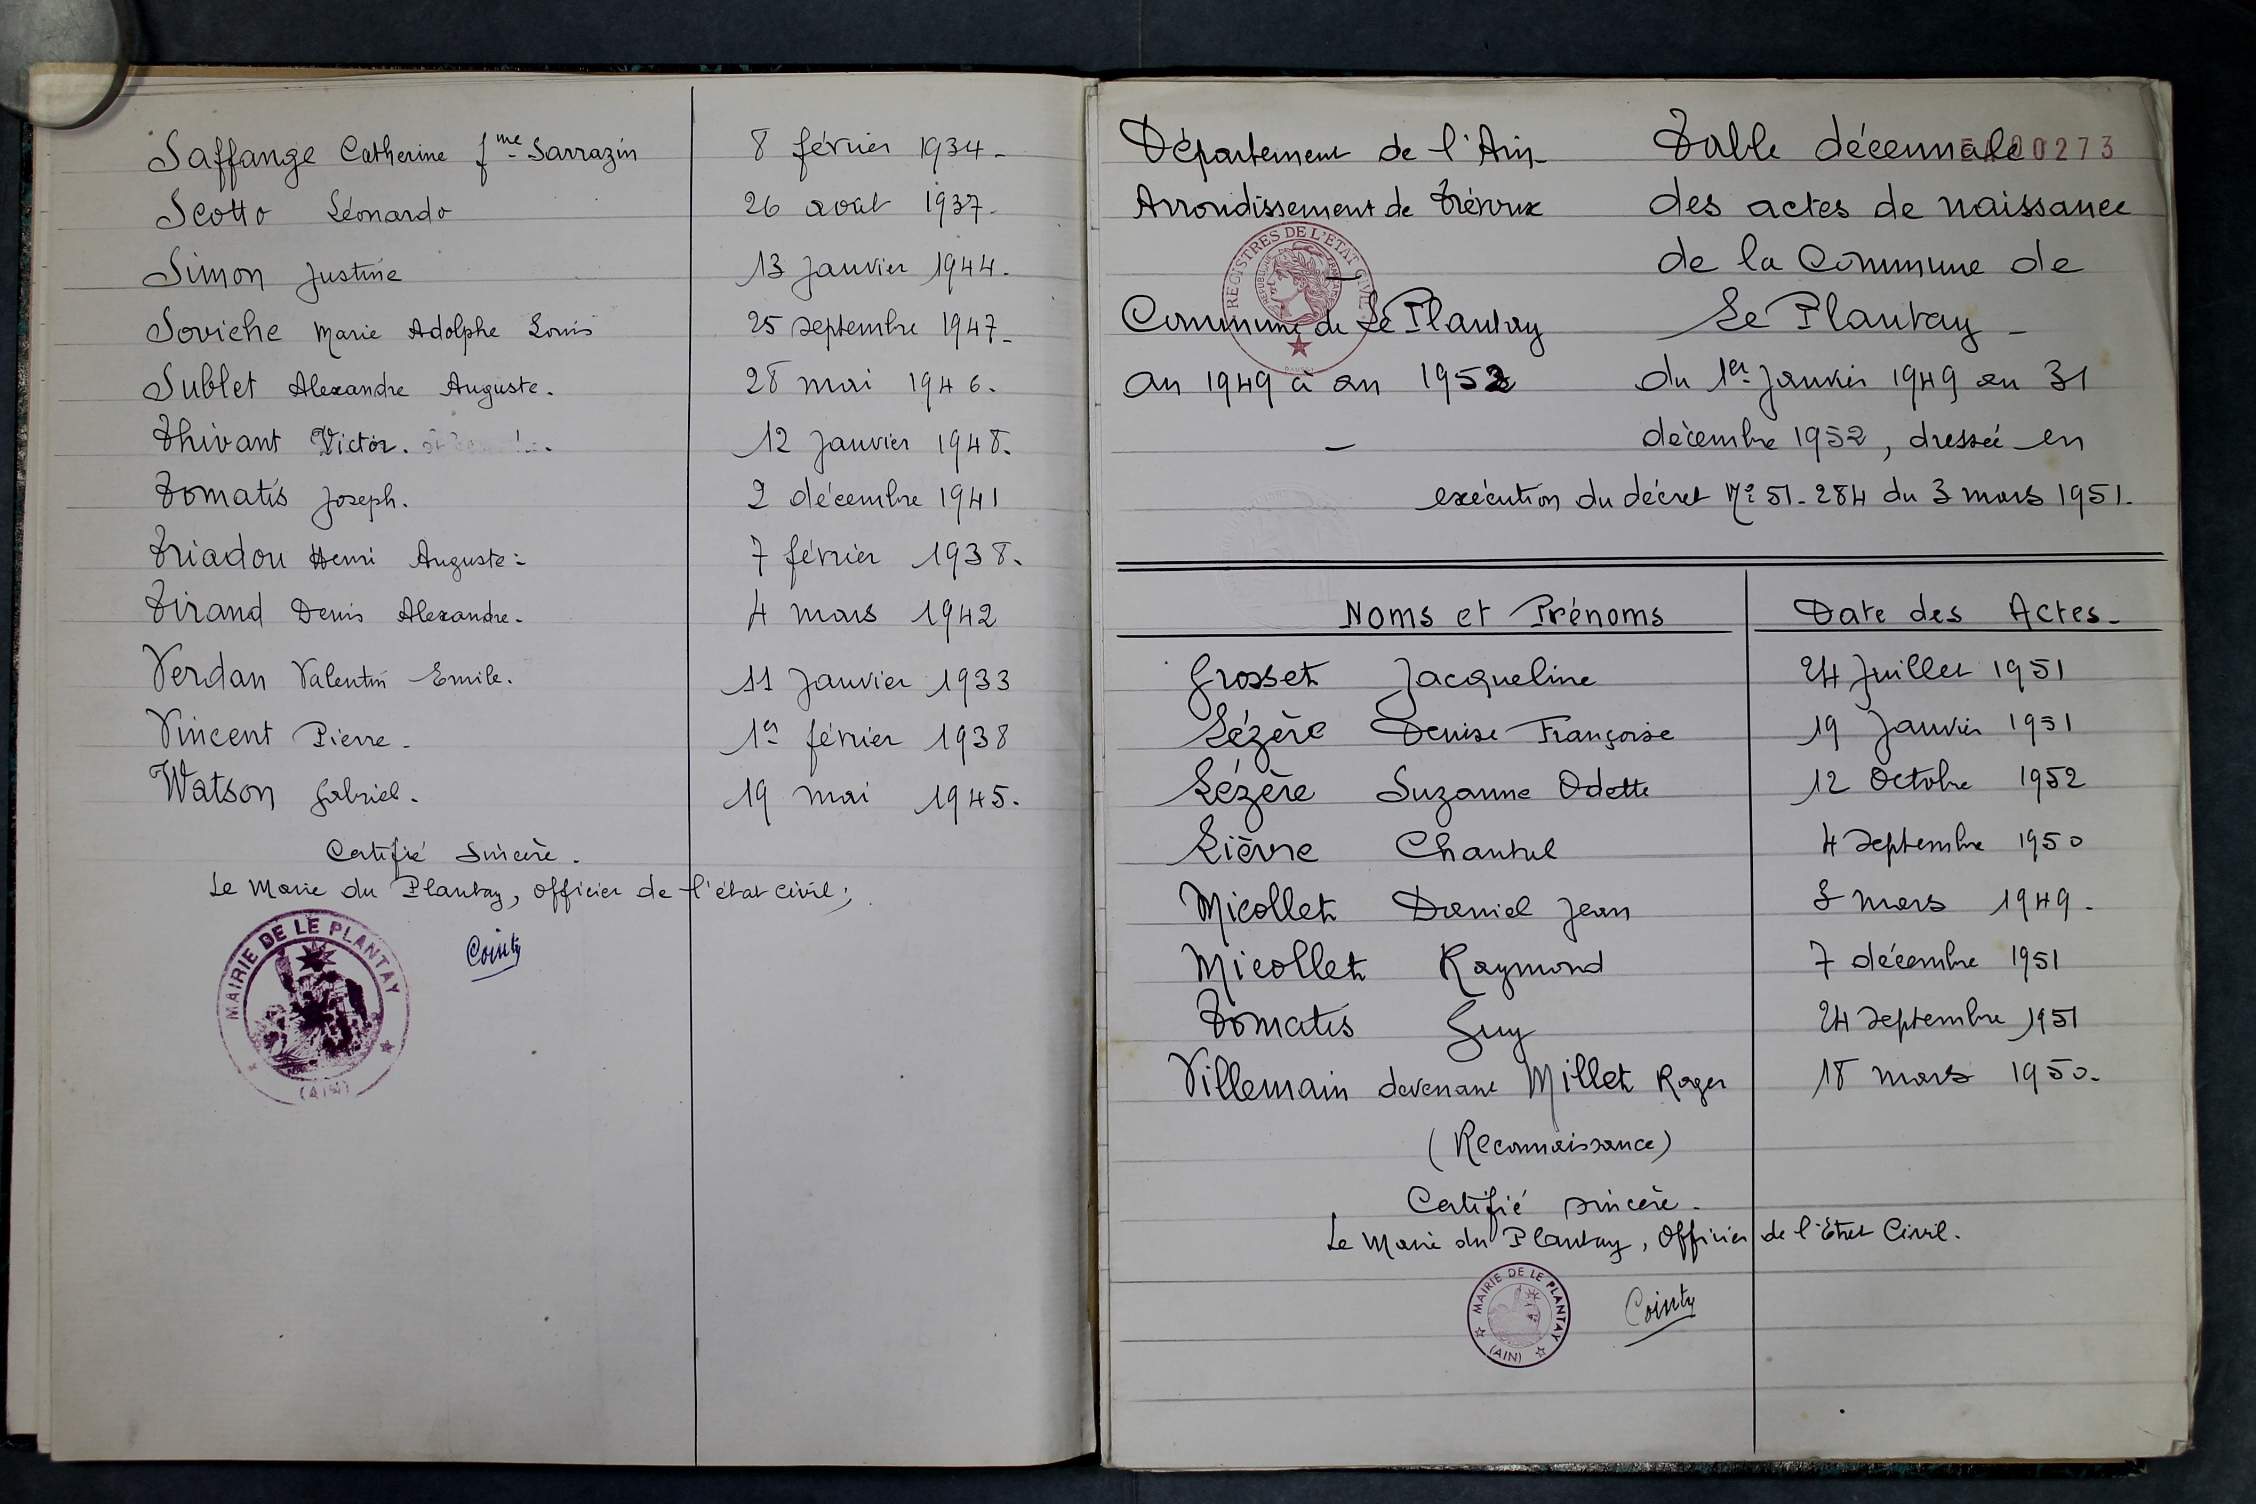 Saffange Catherine fme Sarrazin 8 février 1934-
Scotto Léonardo 26 août 1937-
Simon Justine 13 Janvier 1944.
Soviche Marie Adolphe Louis 25 septembre 1947-
Sublet Alexandre Auguste. 28 mai 1946.
Thivant Victor. 12 Janvier 1948.
Tomatis Joseph. 2 décembre 1941
Triadou Henri Auguste- 7 février 1938.
Tirand Denis Alexandre- 4 mars 1942
Verdan Valentin Emile. 11 Janvier 1933
Vincent Pierre- 1er février 1938
Watson Gabriel. 19 mai 1945.
Certifié Sincère.
Le Maire du Plantay, officier de l'état civil;
MAIRIE DE LE PLANTAY
(AIN)
Cointy
Département de l'Ain-
Arrondissement de Trévoux
REGISTRES DE L'ETAT CIVIL
Commune de Le Plantay
an 1949 à an 1952
Table décennale 00273
des actes de naissance
de la Commune de
Le Plantay-
du 1er Janvier 1949 au 31
décembre 1952, dressée en
exécution du décret N° 51-284 du 3 mars 1951-
Noms et Prénoms Date des Actes-
Grosset Jacqueline 24 Juillet 1951
Lézère Denise Françoise 19 Janvier 1951
Lézère Suzanne Odette 12 Octobre 1952
Lièvre Chantal 4 septembre 1950
Micollet Daniel Jean mars 1949-
Micollet Raymond 7 décembre 1951
Tomatis Guy 24 septembre 1951
Villemain devenant Millet Roger 18 mars 1950-
(Reconnaissance)
Certifié sincère-
Le Maire du Plantay, Officier de l'Etat Civil.
MAIRIE DE LE PLANTAY
(AIN)
Cointy